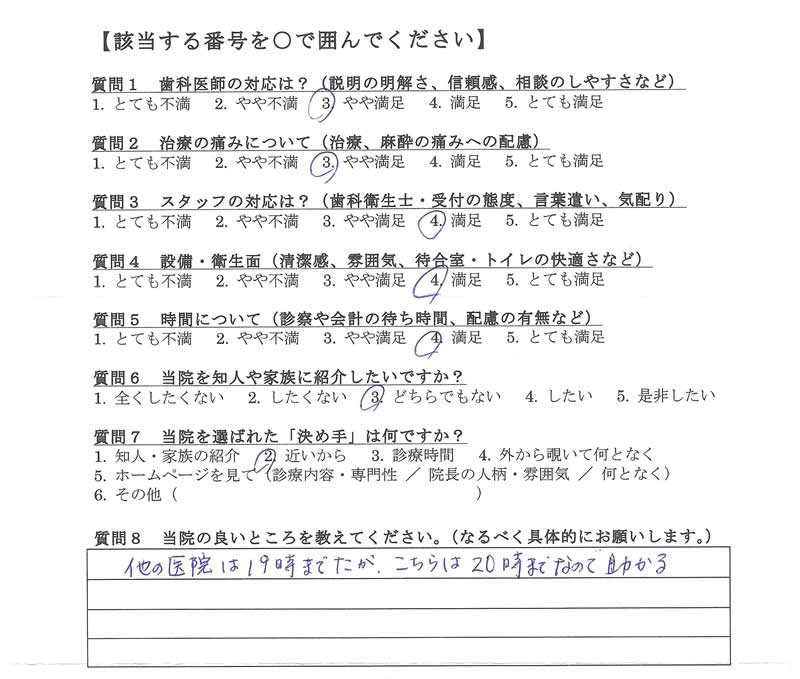 【該当する番号を○で囲んでください】
質問1 歯科医師の対応は?(説明の明解さ、信頼感、相談のしやすさなど)
1. とても不満 2. やや不満 3. やや満足 4. 満足 5. とても満足
質問2 治療の痛みについて(治療、麻酔の痛みへの配慮)
1. とても不満 2. やや不満 3. やや満足 4. 満足 5. とても満足
質問3 スタッフの対応は?(歯科衛生士・受付の態度、言葉遣い、気配り)
1. とても不満 2. やや不満 3. やや満足 4. 満足 5. とても満足
質問4 設備・衛生面(清潔感、雰囲気、待合室・トイレの快適さなど)
1. とても不満 2. やや不満 3. やや満足 4. 満足 5. とても満足
質問5 時間について(診察や会計の待ち時間、配慮の有無など)
1. とても不満 2. やや不満 3. やや満足 4. 満足 5. とても満足
質問6 当院を知人や家族に紹介したいですか?
1. 全くしたくない 2. したくない 3. どちらでもない 4. したい 5. 是非したい
質問7 当院を選ばれた「決め手」は何ですか?
1. 知人・家族の紹介 2. 近いから 3. 診療時間 4. 外から覗いて何となく
5. ホームページを見て(診療内容・専門性 / 院長の人柄・雰囲気 / 何となく)
6. その他( )
質問8 当院の良いところを教えてください。(なるべく具体的にお願いします。)
他の医院は19時までだが、こちらは20時までなので助かる